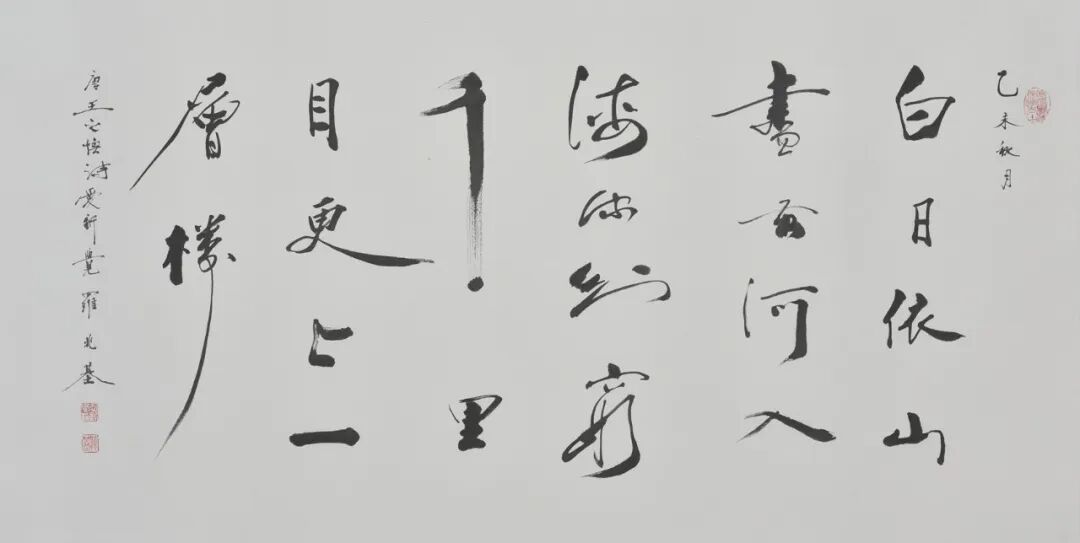 乙未秋月
白日依山
盡黃河入
海流欲窮
千里
目更上一
層樓
唐王之渙詩愛新覺羅兆基